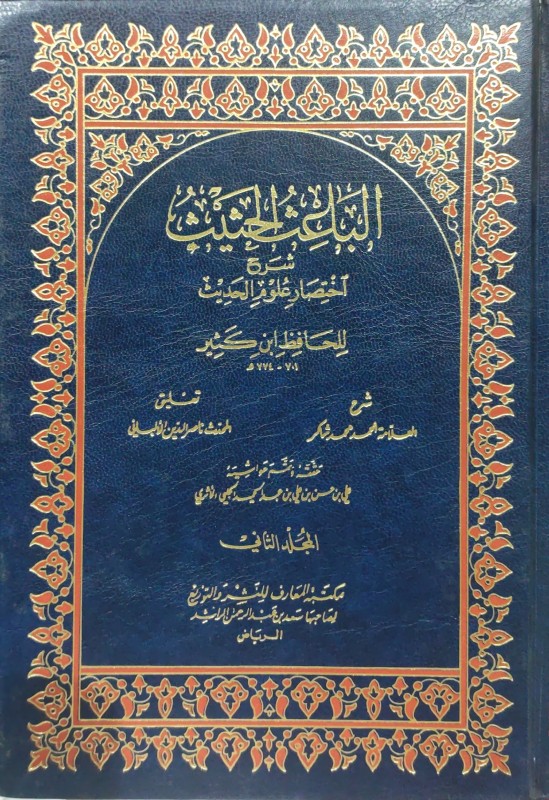 الباعث الحثيث
شرح
اختصار علوم الحديث
للحافظ ابن كثير
٧٠١ - ٧٧٤ هـ
شرح
العلامة أحمد محمد شاكر
تعليق
المحدث ناصر الدين الألباني
حققه وتمم حواشيه
علي بن حسن بن علي بن عبد الحميد الحلبي الأثري
المجلد الثاني
مكتبة المعارف للنشر والتوزيع
لصاحبها سعد بن عبد الرحمن الراشد
الرياض